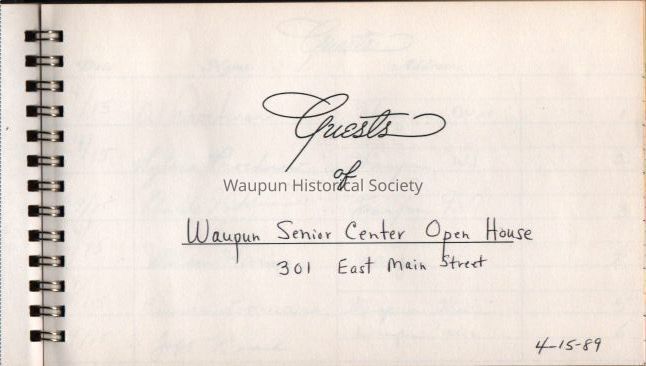 Guests
of
Waupun Historical Society
Waupun Senior Center Open House
301 East Main Street
4-15-89